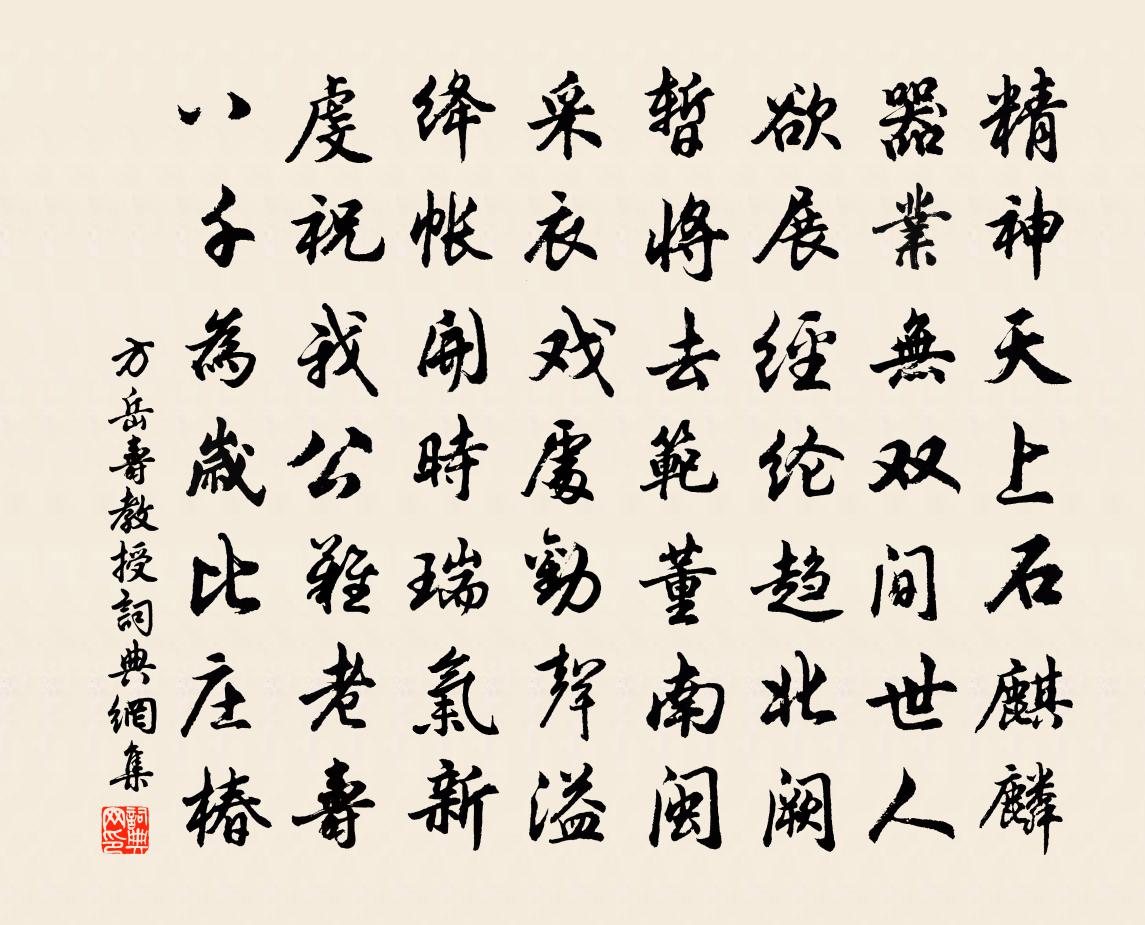 精神天上石麒麟
器業無双间世人
欲展經纶趋北阙
暫將去範董南闽
采衣戏處勤聲溢
绛帐開時瑞氣新
虔祝我公難老壽
八千為歲比庄椿
方岳壽教授詞典網集
詞典网印